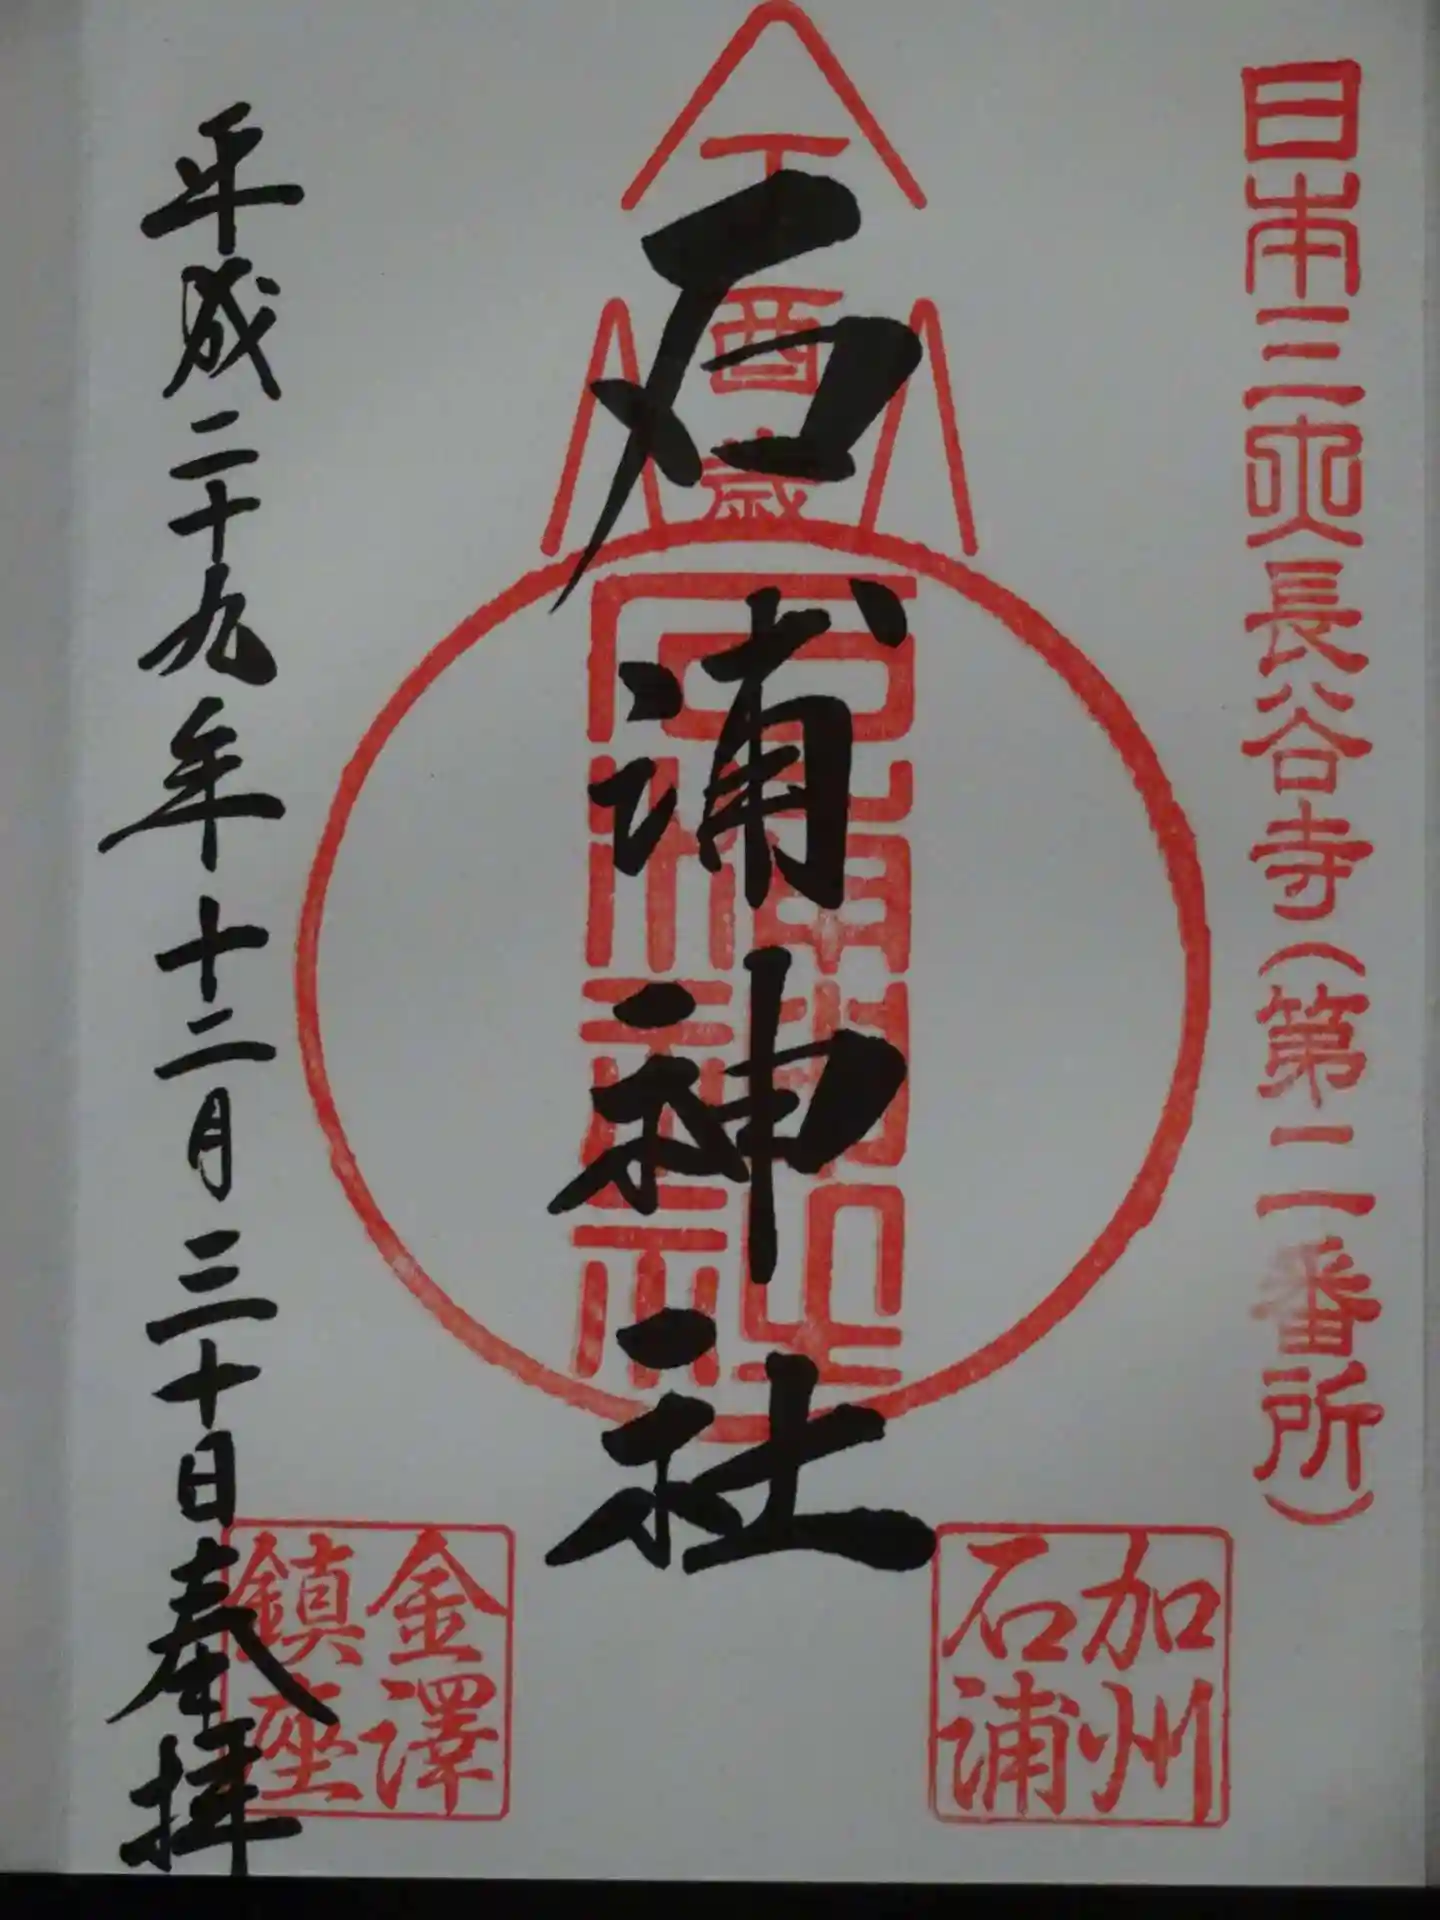 日本三大長谷寺(第二番所)
丁
酉
歳
石浦神社
石浦神社
加州
石浦
金澤
鎮座
平成二十九年十二月三十日奉拝